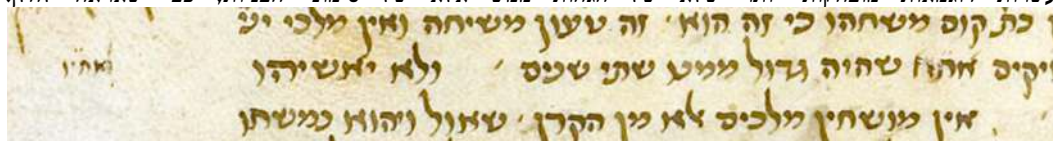 כת' קום משחהו כי זה הוא · זה טעון משיחה ואין מלכי יש'
יקים שהיה גדול ממנו שתי שנים · ולא יאשיהו
· אין מושחין מלכים אלא מן הקרן · שאול ויהוא נמשחו